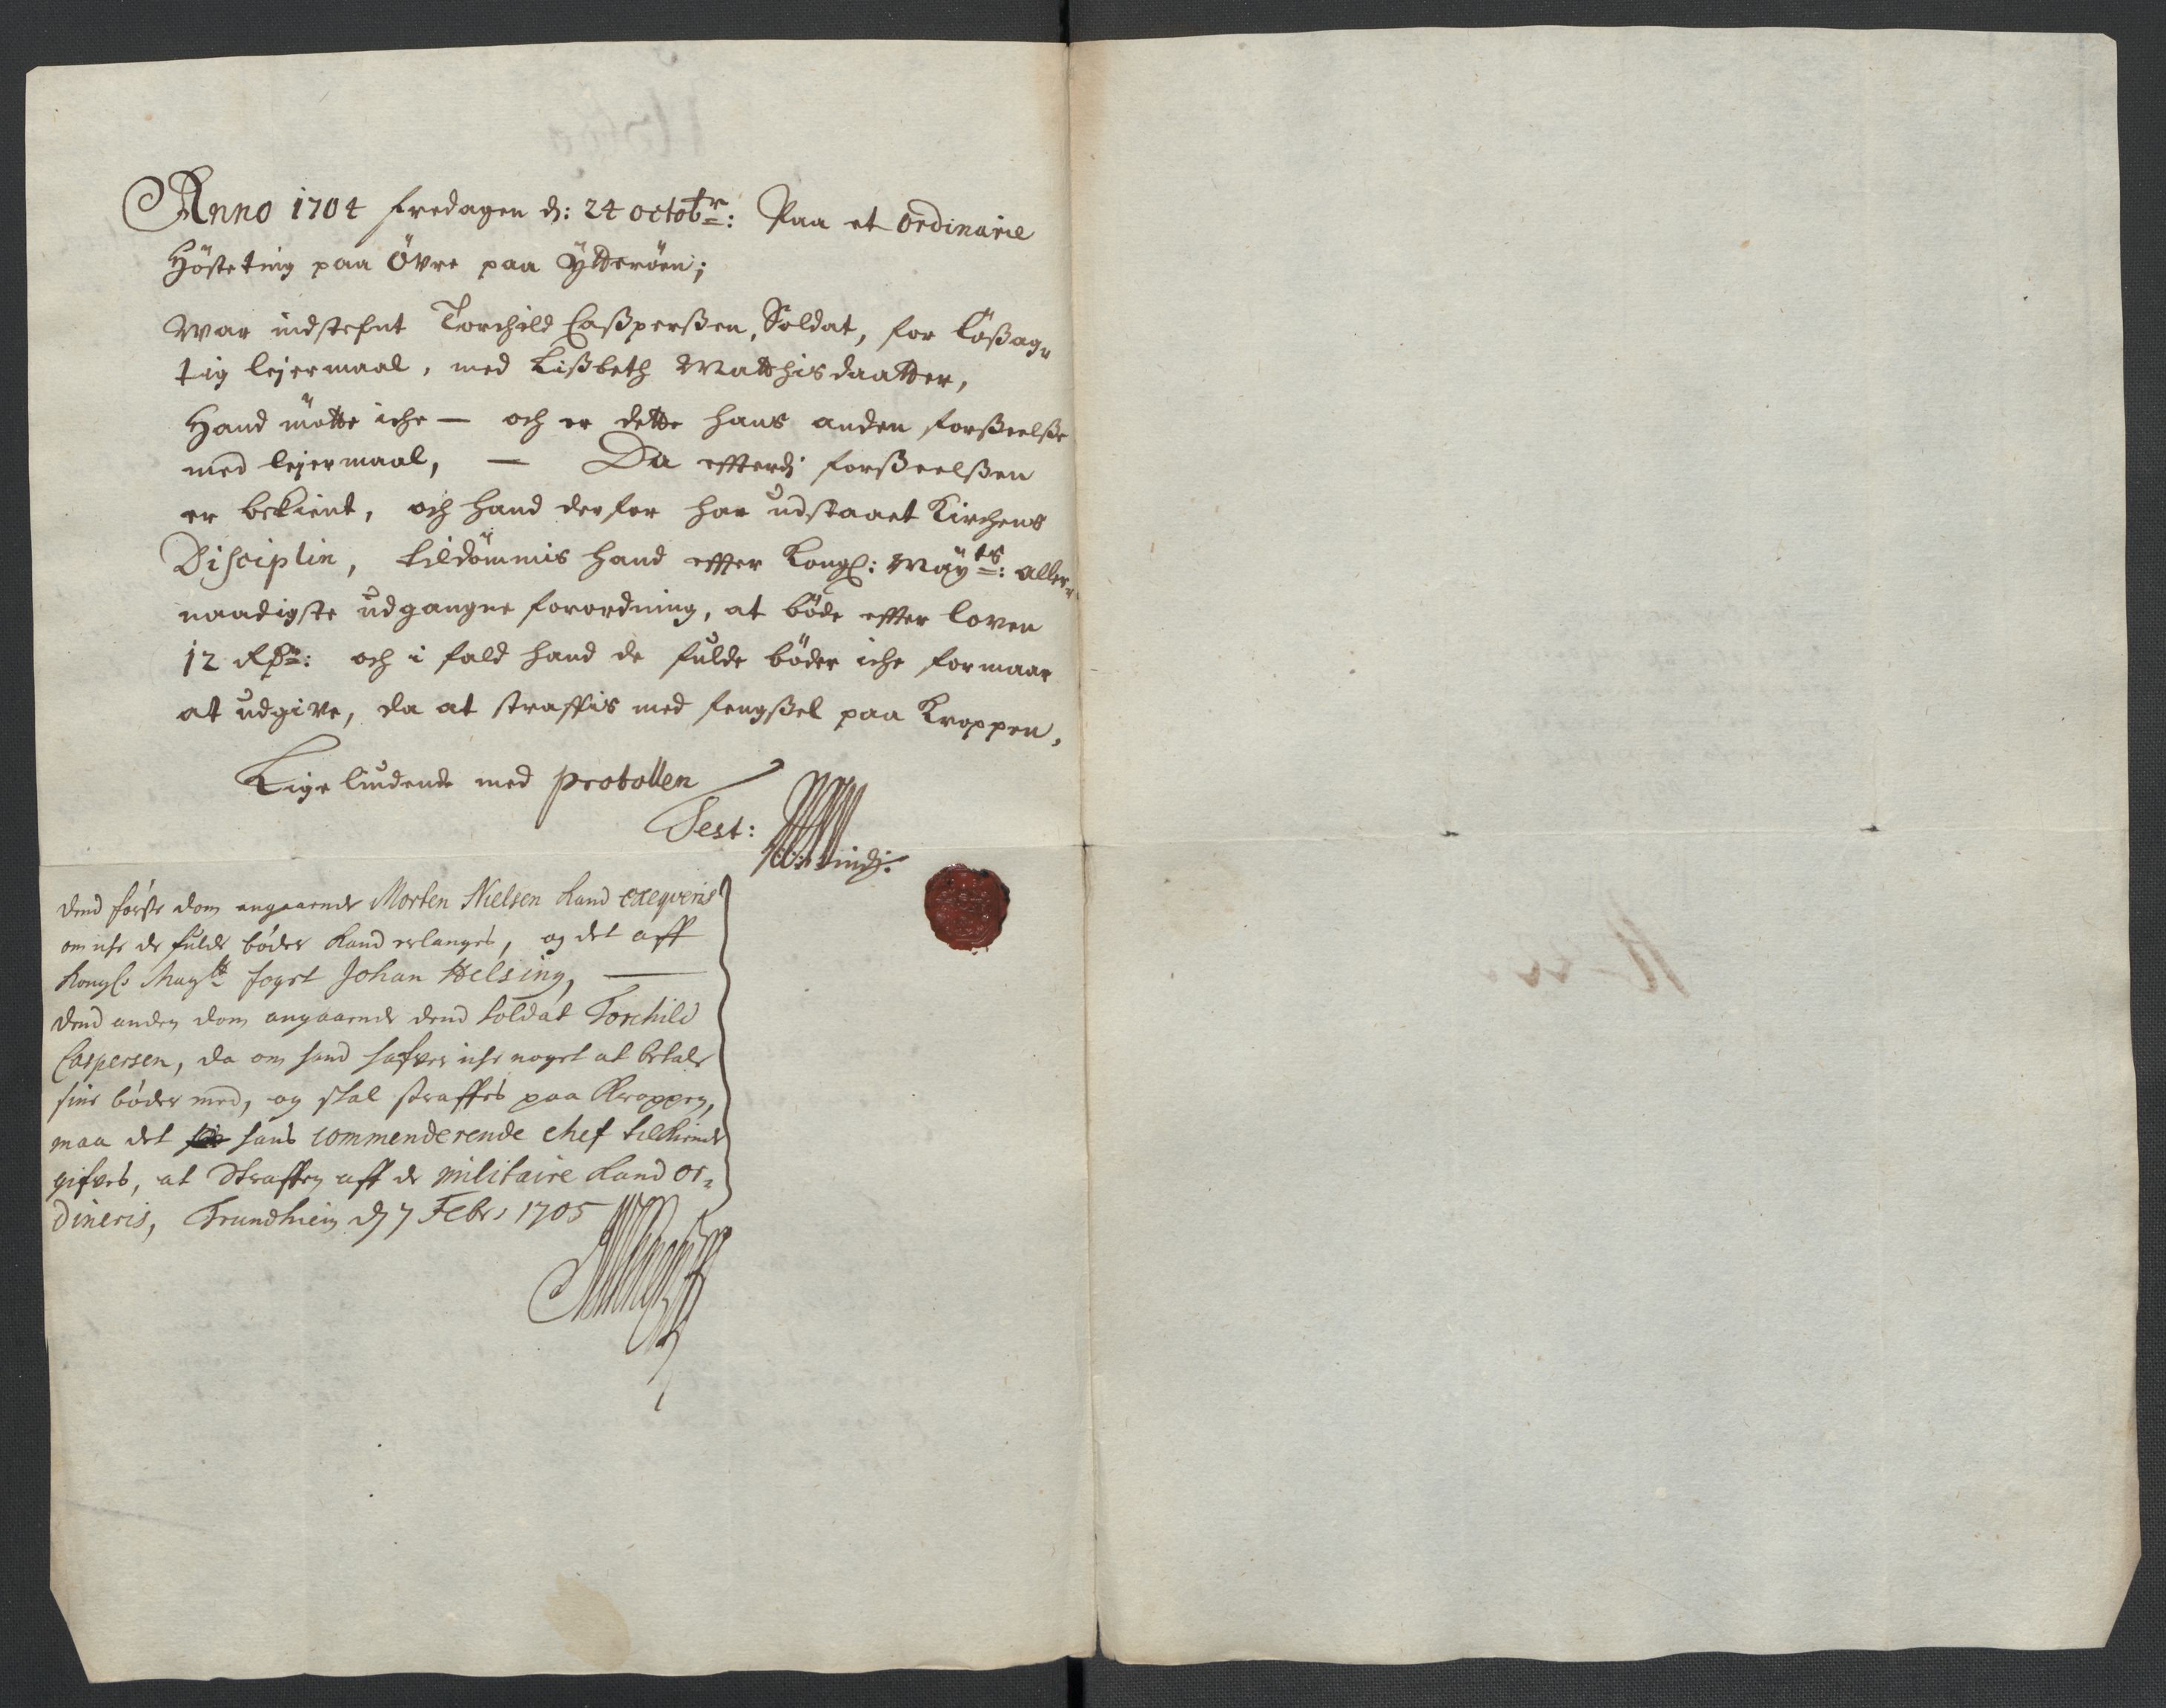 Anno 1704 fredagen d: 24 octobr: Paa et ordinarie
Hösteting paa Övre paa Ÿtteröen;
War indstefnt Torchild Casperßen, Soldat, for Lößag-
tig lejermaal, med Lißbeth Matthisdaatter,
Hand mötte iche — och er dette hans anden forßeelße
med lejermaal, — Da efterdj forßeelßen
er bekient, och hand derfor har udstaaet Kirchens
Disciplin, tildömmis hand efter Kongl: Maÿts: aller-
naadigste udgangne forordning, at böde efter loven
12 Rdr: och i fald hand de fulde böder iche formaar
at udgive, da at straffis med fengßel paa Kroppen,
Lige liudende med protollen
Test:
dend förste dom angaaende Morten Nielsen kand exeqveris
om iche de fulde böder kand erlanges, og det aff
Kongl: Mayts fogt Johan Helsing, —
dend anden dom angaaende dend soldat Torchild
Caspersen, da om hand hafver iche noget at betale
sine böder med, og skal straffes paa Kroppen,
maa det hans commenderende chef tilkiende
gifves, at Straffen aff de militaire kand or-
dineris, Trundhiem d 7 Febr: 1705